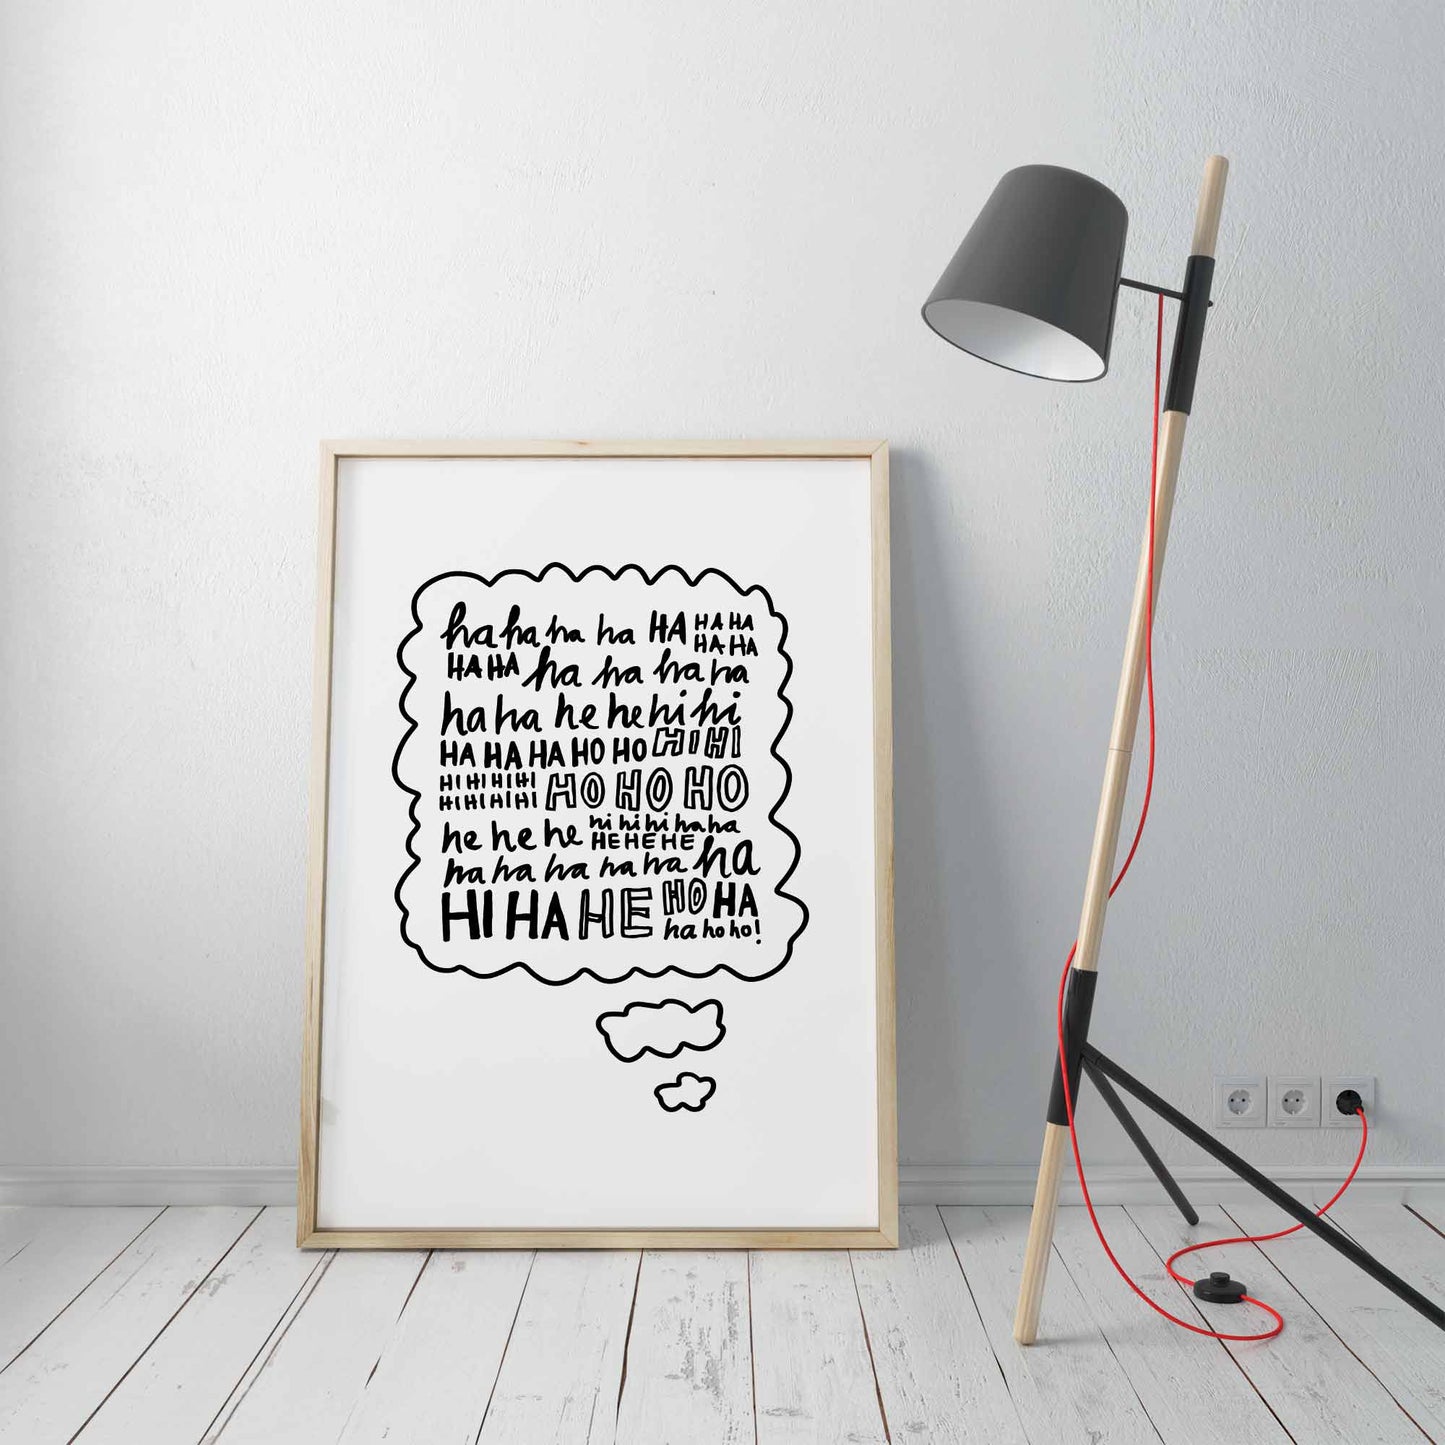 haha ha ha HA HA HA
HA HA
HA HA ha ha ha ha
ha ha he he hi hi
HA HA HA HO HO HI HI
HI HI HI HI HO HO HO
HI HI HI HI
he he he hi hi hi ha ha
HE HE HE
ha ha ha ha ha ha
HI HA HE HO HA
ha ho ho!